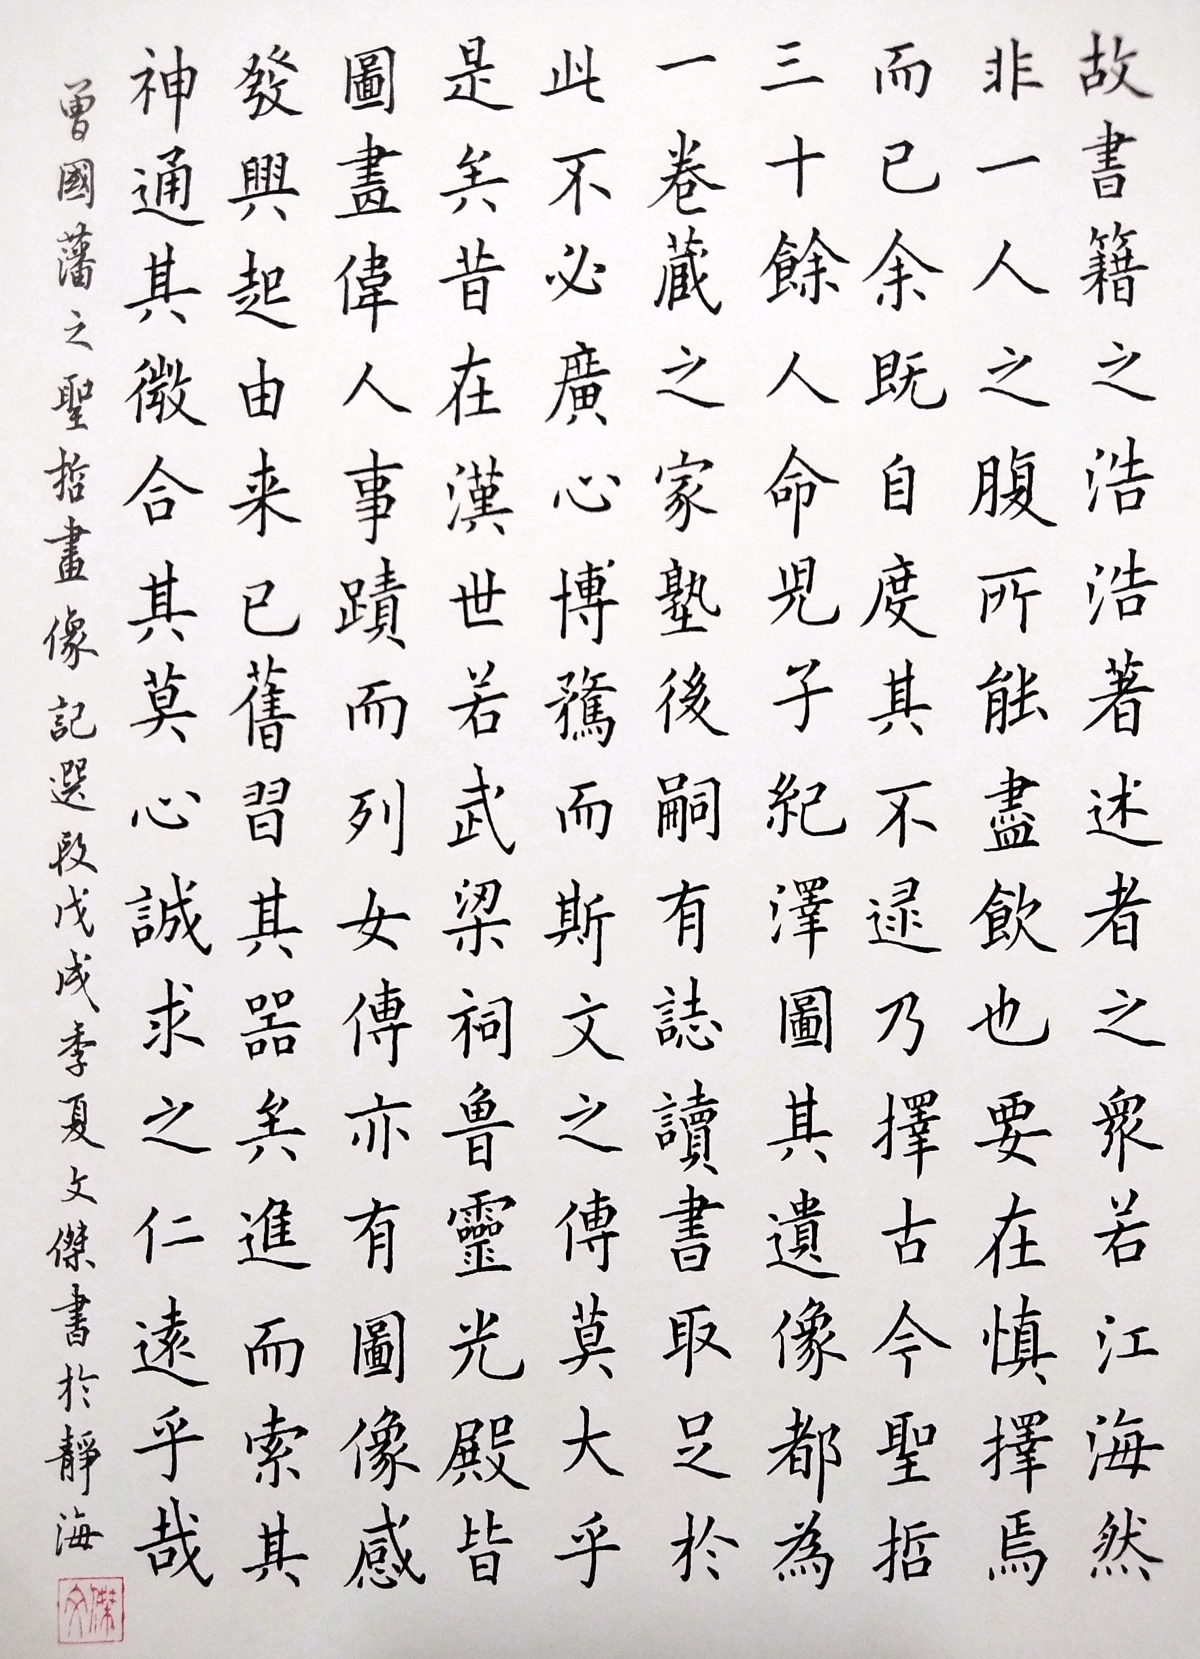 故書籍之浩浩著述者之衆若江海然
非一人之腹所能盡飲也要在慎擇焉
而已余既自度其不逮乃擇古今聖哲
三十餘人命兒子紀澤圖其遺像都為
一卷藏之家塾後嗣有誌讀書取足於
此不必廣心博騖而斯文之傳莫大乎
是矣昔在漢世若武梁祠魯靈光殿皆
圖畫偉人事蹟而列女傳亦有圖像感
發興起由来已舊習其器矣進而索其
神通其微合其莫心誠求之仁遠乎哉
曾國藩之聖哲畫像記選段戊戌季夏文傑書於靜海
傑文